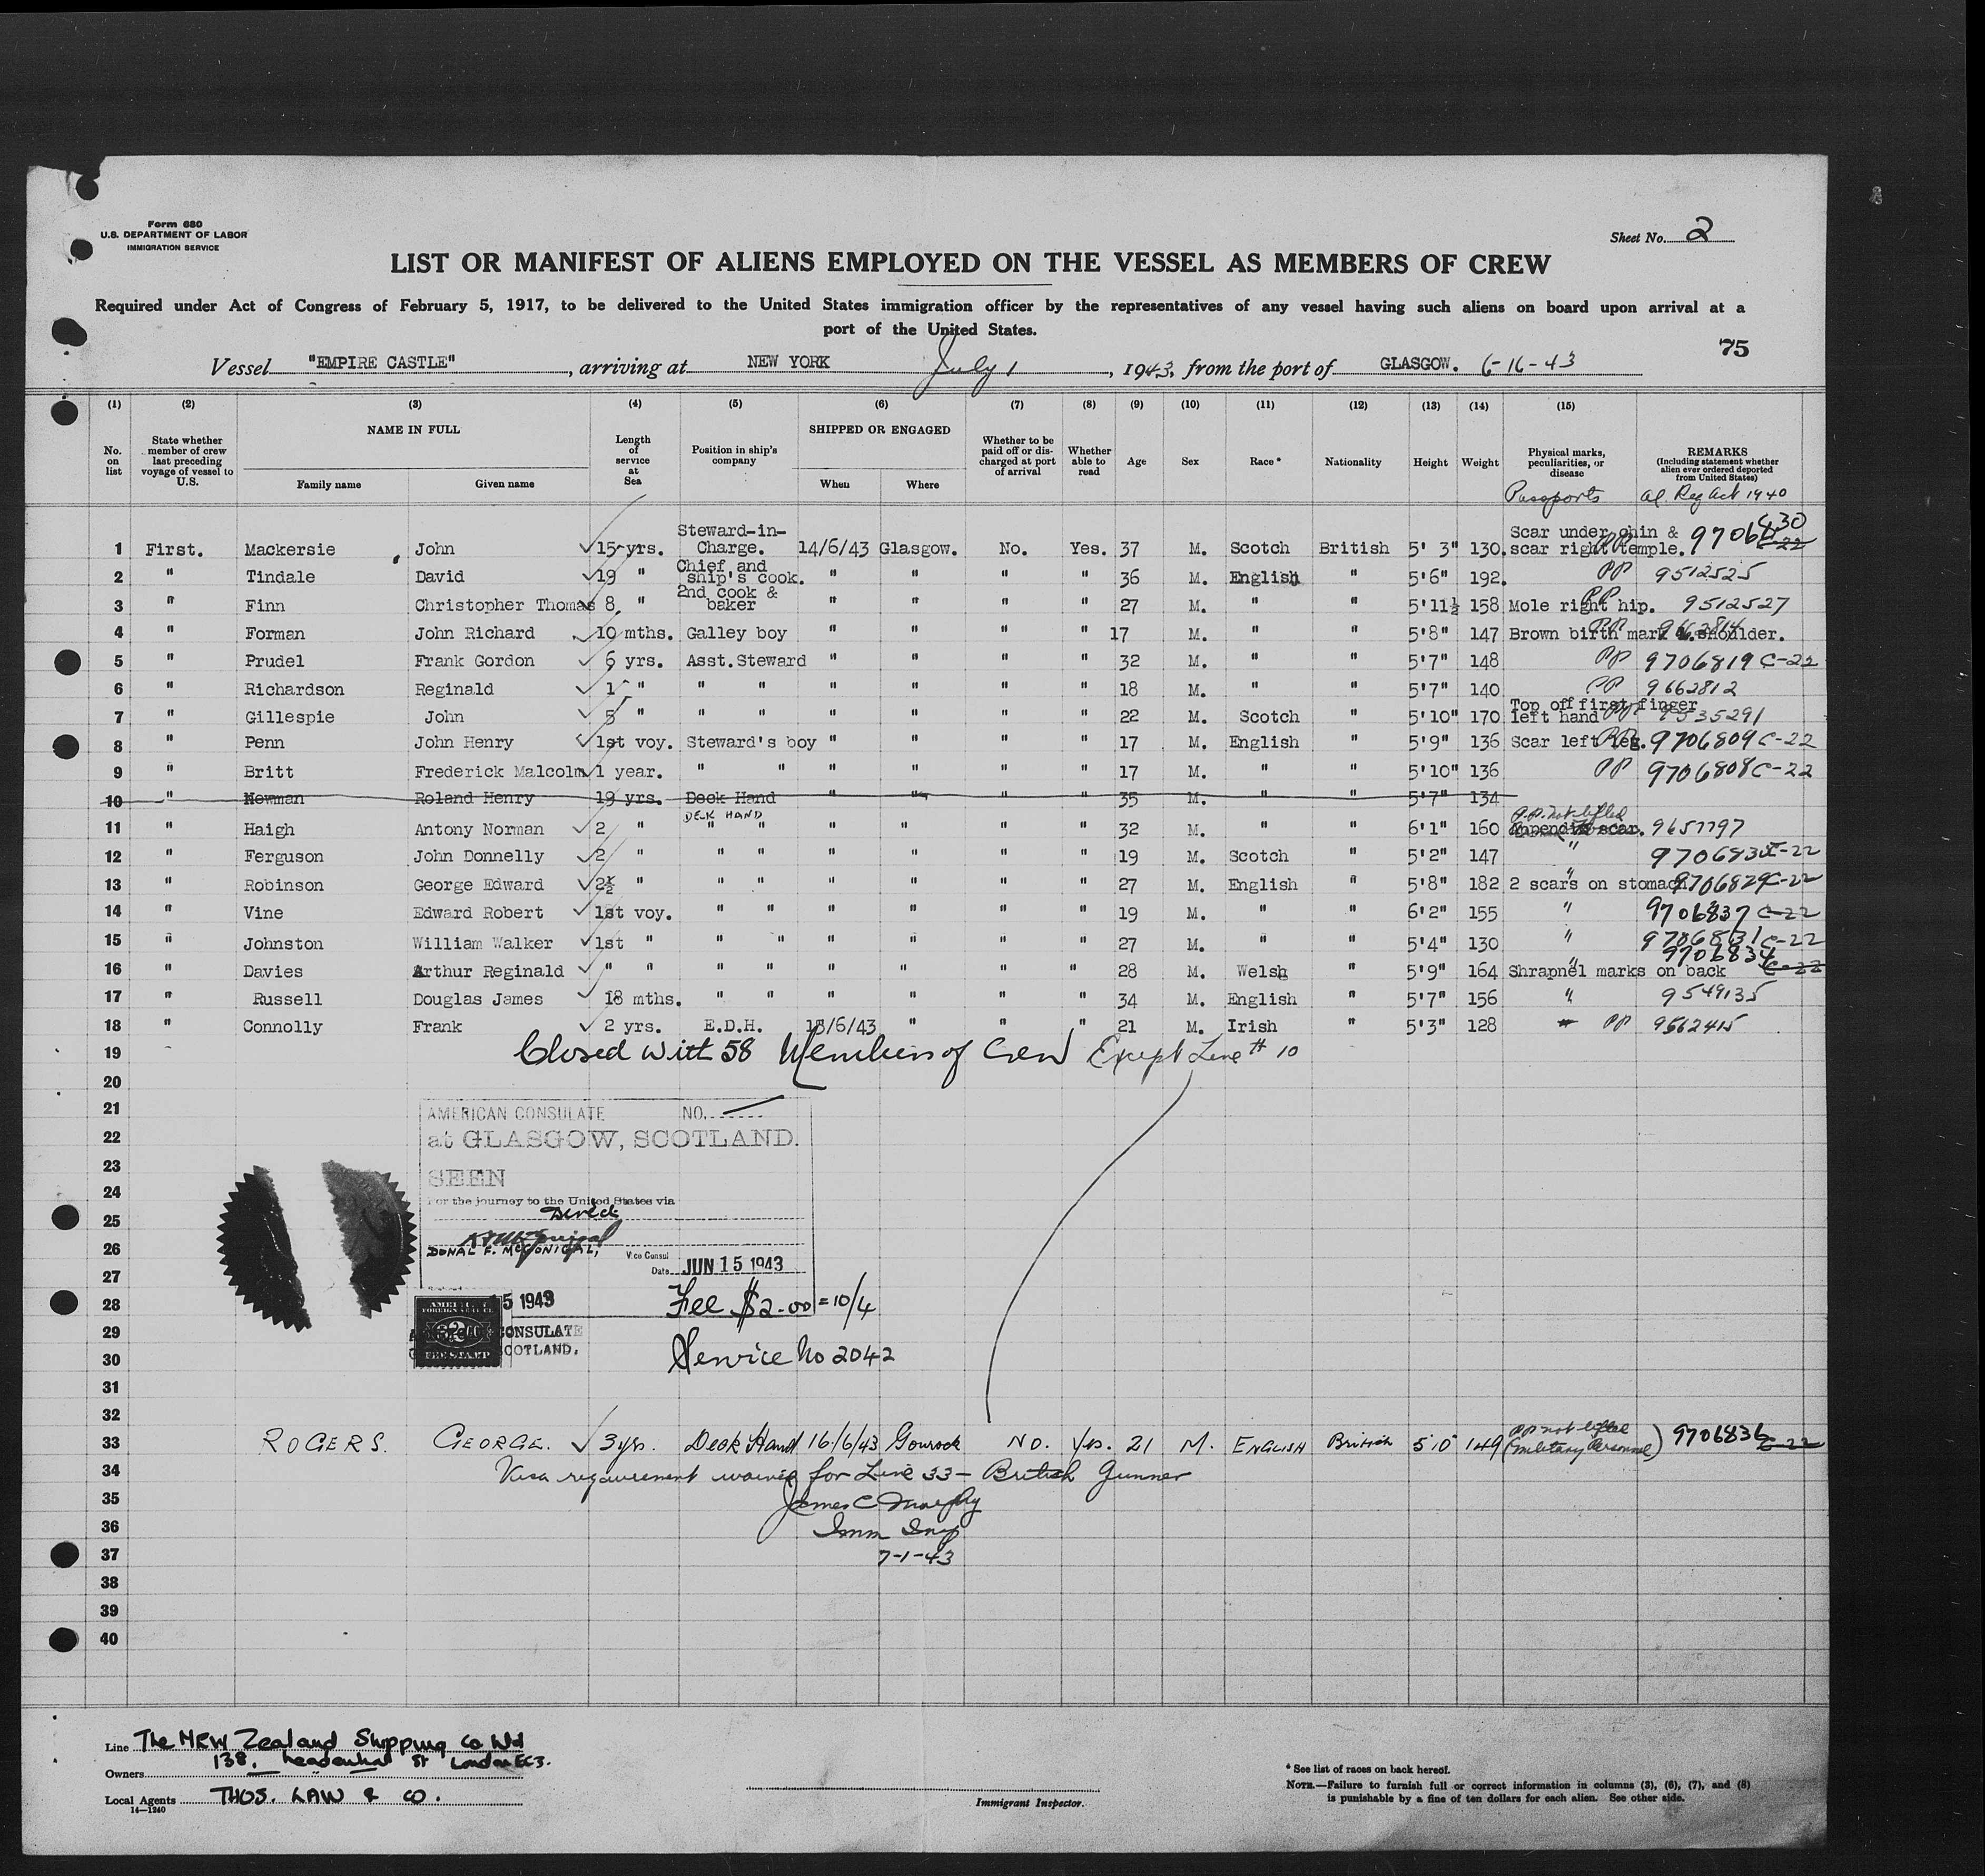 Form 680
U.S. DEPARTMENT OF LABOR
IMMIGRATION SERVICE
Sheet No. 2
LIST OR MANIFEST OF ALIENS EMPLOYED ON THE VESSEL AS MEMBERS OF CREW
Required under Act of Congress of February 5, 1917, to be delivered to the United States immigration officer by the representatives of any vessel having such aliens on board upon arrival at a
port of the United States.
75
Vessel "EMPIRE CASTLE", arriving at NEW YORK July 1, 1943, from the port of GLASGOW. 6-16-43
(1) (2) (3) (4) (5) (6) (7) (8) (9) (10) (11) (12) (13) (14) (15)
No. on list
State whether member of crew last preceding voyage of vessel to U.S.
NAME IN FULL
Family name Given name
Length of service at Sea
Position in ship's company
SHIPPED OR ENGAGED
When Where
Whether to be paid off or discharged at port of arrival
Whether able to read
Age
Sex
Race*
Nationality
Height
Weight
Physical marks, peculiarities, or disease
Passports
REMARKS
(Including statement whether alien ever ordered deported from United States)
Al. Reg Act 1940
1 First. Mackersie John 15 yrs. Steward-in-Charge. 14/6/43 Glasgow. No. Yes. 37 M. Scotch British 5' 3" 130. Scar under chin & scar right temple. PP
2 " Tindale David 19 " Chief and ship's cook. " " " " 36 M. English " 5'6" 192. PP 9512525
3 " Finn Christopher Thomas 8 " 2nd cook & baker " " " " 27 M. " " 5'11½ 158 Mole right hip. PP 9512527
4 " Forman John Richard 10 mths. Galley boy " " " " 17 M. " " 5'8" 147 Brown birth mark L. shoulder. PP 9662814
5 " Prudel Frank Gordon 6 yrs. Asst. Steward " " " " 32 M. " " 5'7" 148 PP 9706819 C-22
6 " Richardson Reginald 1 " " " " " " " 18 M. " " 5'7" 140 PP 9662812
7 " Gillespie John 5 " " " " " " " 22 M. Scotch " 5'10" 170 Top off first finger left hand PP 9535291
8 " Penn John Henry 1st voy. Steward's boy " " " " 17 M. English " 5'9" 136 Scar left leg. PP 9706809 C-22
9 " Britt Frederick Malcolm 1 year. " " " " " " 17 M. " " 5'10" 136 PP 9706808 C-22
10 " Newman Roland Henry 19 yrs. Deck Hand " " " " 35 M. " " 5'7" 134
11 " Haigh Antony Norman 2 " DECK HAND " " " " " " 32 M. " " 6'1" 160 Appendix scar. P.P. not lifted 9657797
12 " Ferguson John Donnelly 2 " " " " " " " 19 M. Scotch " 5'2" 147 "
13 " Robinson George Edward 2½ " " " " " " " 27 M. English " 5'8" 182 2 scars on stomach " 9706829 C-22
14 " Vine Edward Robert 1st voy. " " " " " " 19 M. " " 6'2" 155 " 9706837 C-22
15 " Johnston William Walker 1st " " " " " " " 27 M. " " 5'4" 130 " 9706831 C-22
16 " Davies Arthur Reginald " " " " " " " " 28 M. Welsh " 5'9" 164 Shrapnel marks on back " 9706834 C-22
17 " Russell Douglas James 18 mths. " " " " " " 34 M. English " 5'7" 156 " 9549135
18 " Connolly Frank 2 yrs. E.D.H. 15/6/43 " " " 21 M. Irish " 5'3" 128 PP 9562415
19 Closed with 58 Members of Crew Except Line # 10
20
21
22
23
24
25
26
27
28
29
30
31
32
AMERICAN CONSULATE NO.
at GLASGOW, SCOTLAND.
SEEN
For the journey to the United States via
Direct
DONAL F. McGONIGAL, Vice Consul
Date JUN 15 1943
5 1943
Fee $2.00 = 10/4
CONSULATE
SCOTLAND.
FEE STAMP
Service No 2042
33 ROGERS. GEORGE. 3 yrs. Deck Hand 16/6/43 Gourock NO. Yes. 21 M. ENGLISH British 5'10 149 (PP not lifted military Personnel) 9706836 C-22
34 Visa requirement waived for Line 33 - British Gunner
35 James C Murphy
36 Imm Insp
37 7-1-43
38
39
40
Line The New Zealand Shipping Co Ltd
Owners 138, Leadenhall St London EC3.
Local Agents THOS. LAW & CO.
14—1240
Immigrant Inspector.
* See list of races on back hereof.
NOTE.—Failure to furnish full or correct information in columns (3), (6), (7), and (8)
is punishable by a fine of ten dollars for each alien. See other side.